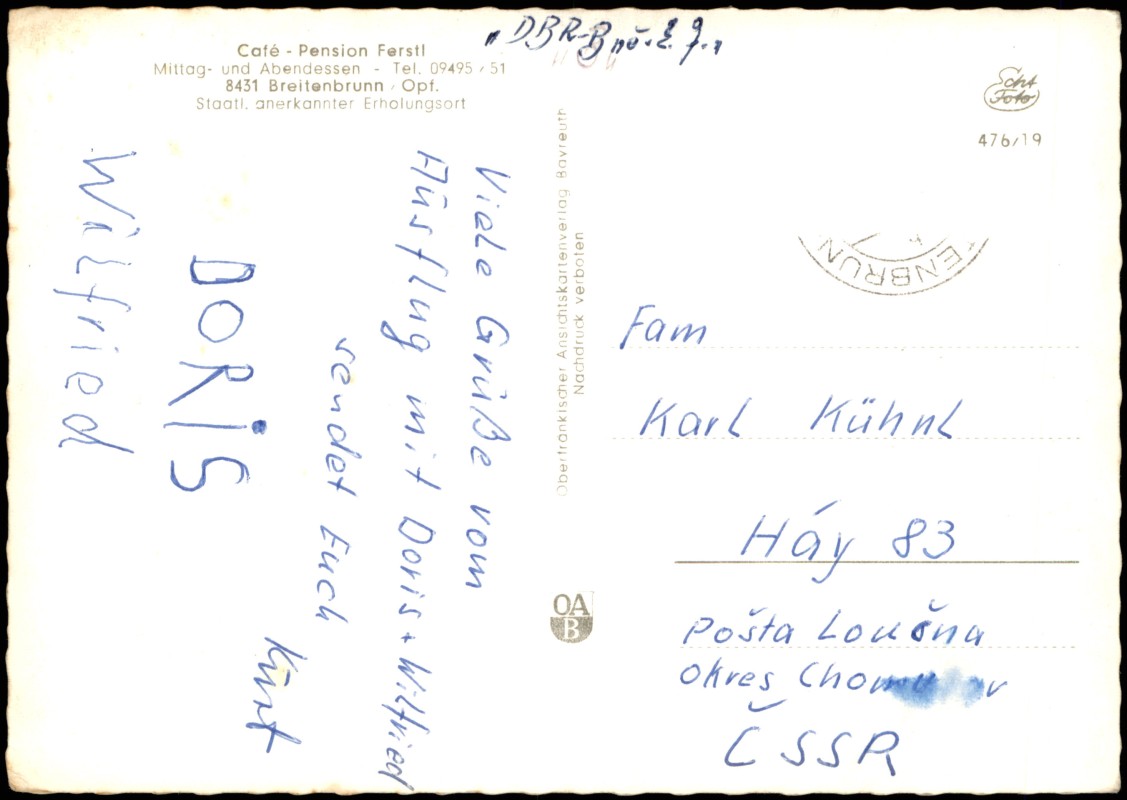 Café - Pension Ferstl
Mittag- und Abendessen - Tel. 09495 / 51
8431 Breitenbrunn / Opf.
Staatl. anerkannter Erholungsort
Viele Grüße vom
Ausflug mit Doris + Wilfried
sendet Euch
Kurt
DORiS
Wilfried
Oberfränkischer Ansichtskartenverlag Bayreuth
Nachdruck verboten
OAB
Echt
Foto
476/19
ENBRUN
Fam
Karl Kühnl
Háj 83
Pošta Loučna
Okres
ČSSR